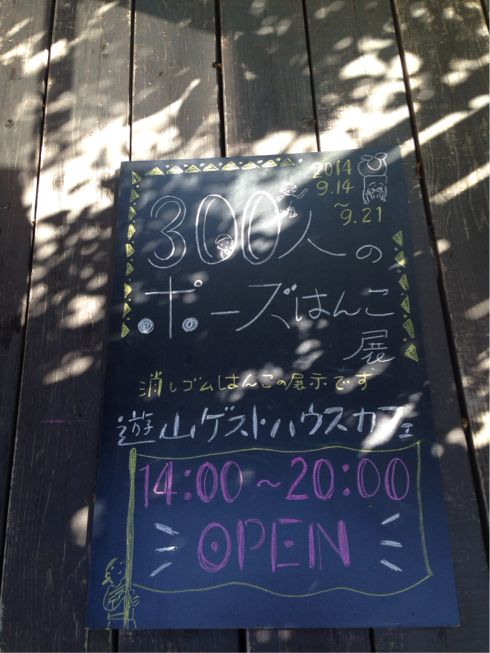 2014
9.14
～
9.21
300人の
ポーズはんこ
展
消しゴムはんこの展示です
遊山ゲストハウスカフェ
14:00～20:00
OPEN